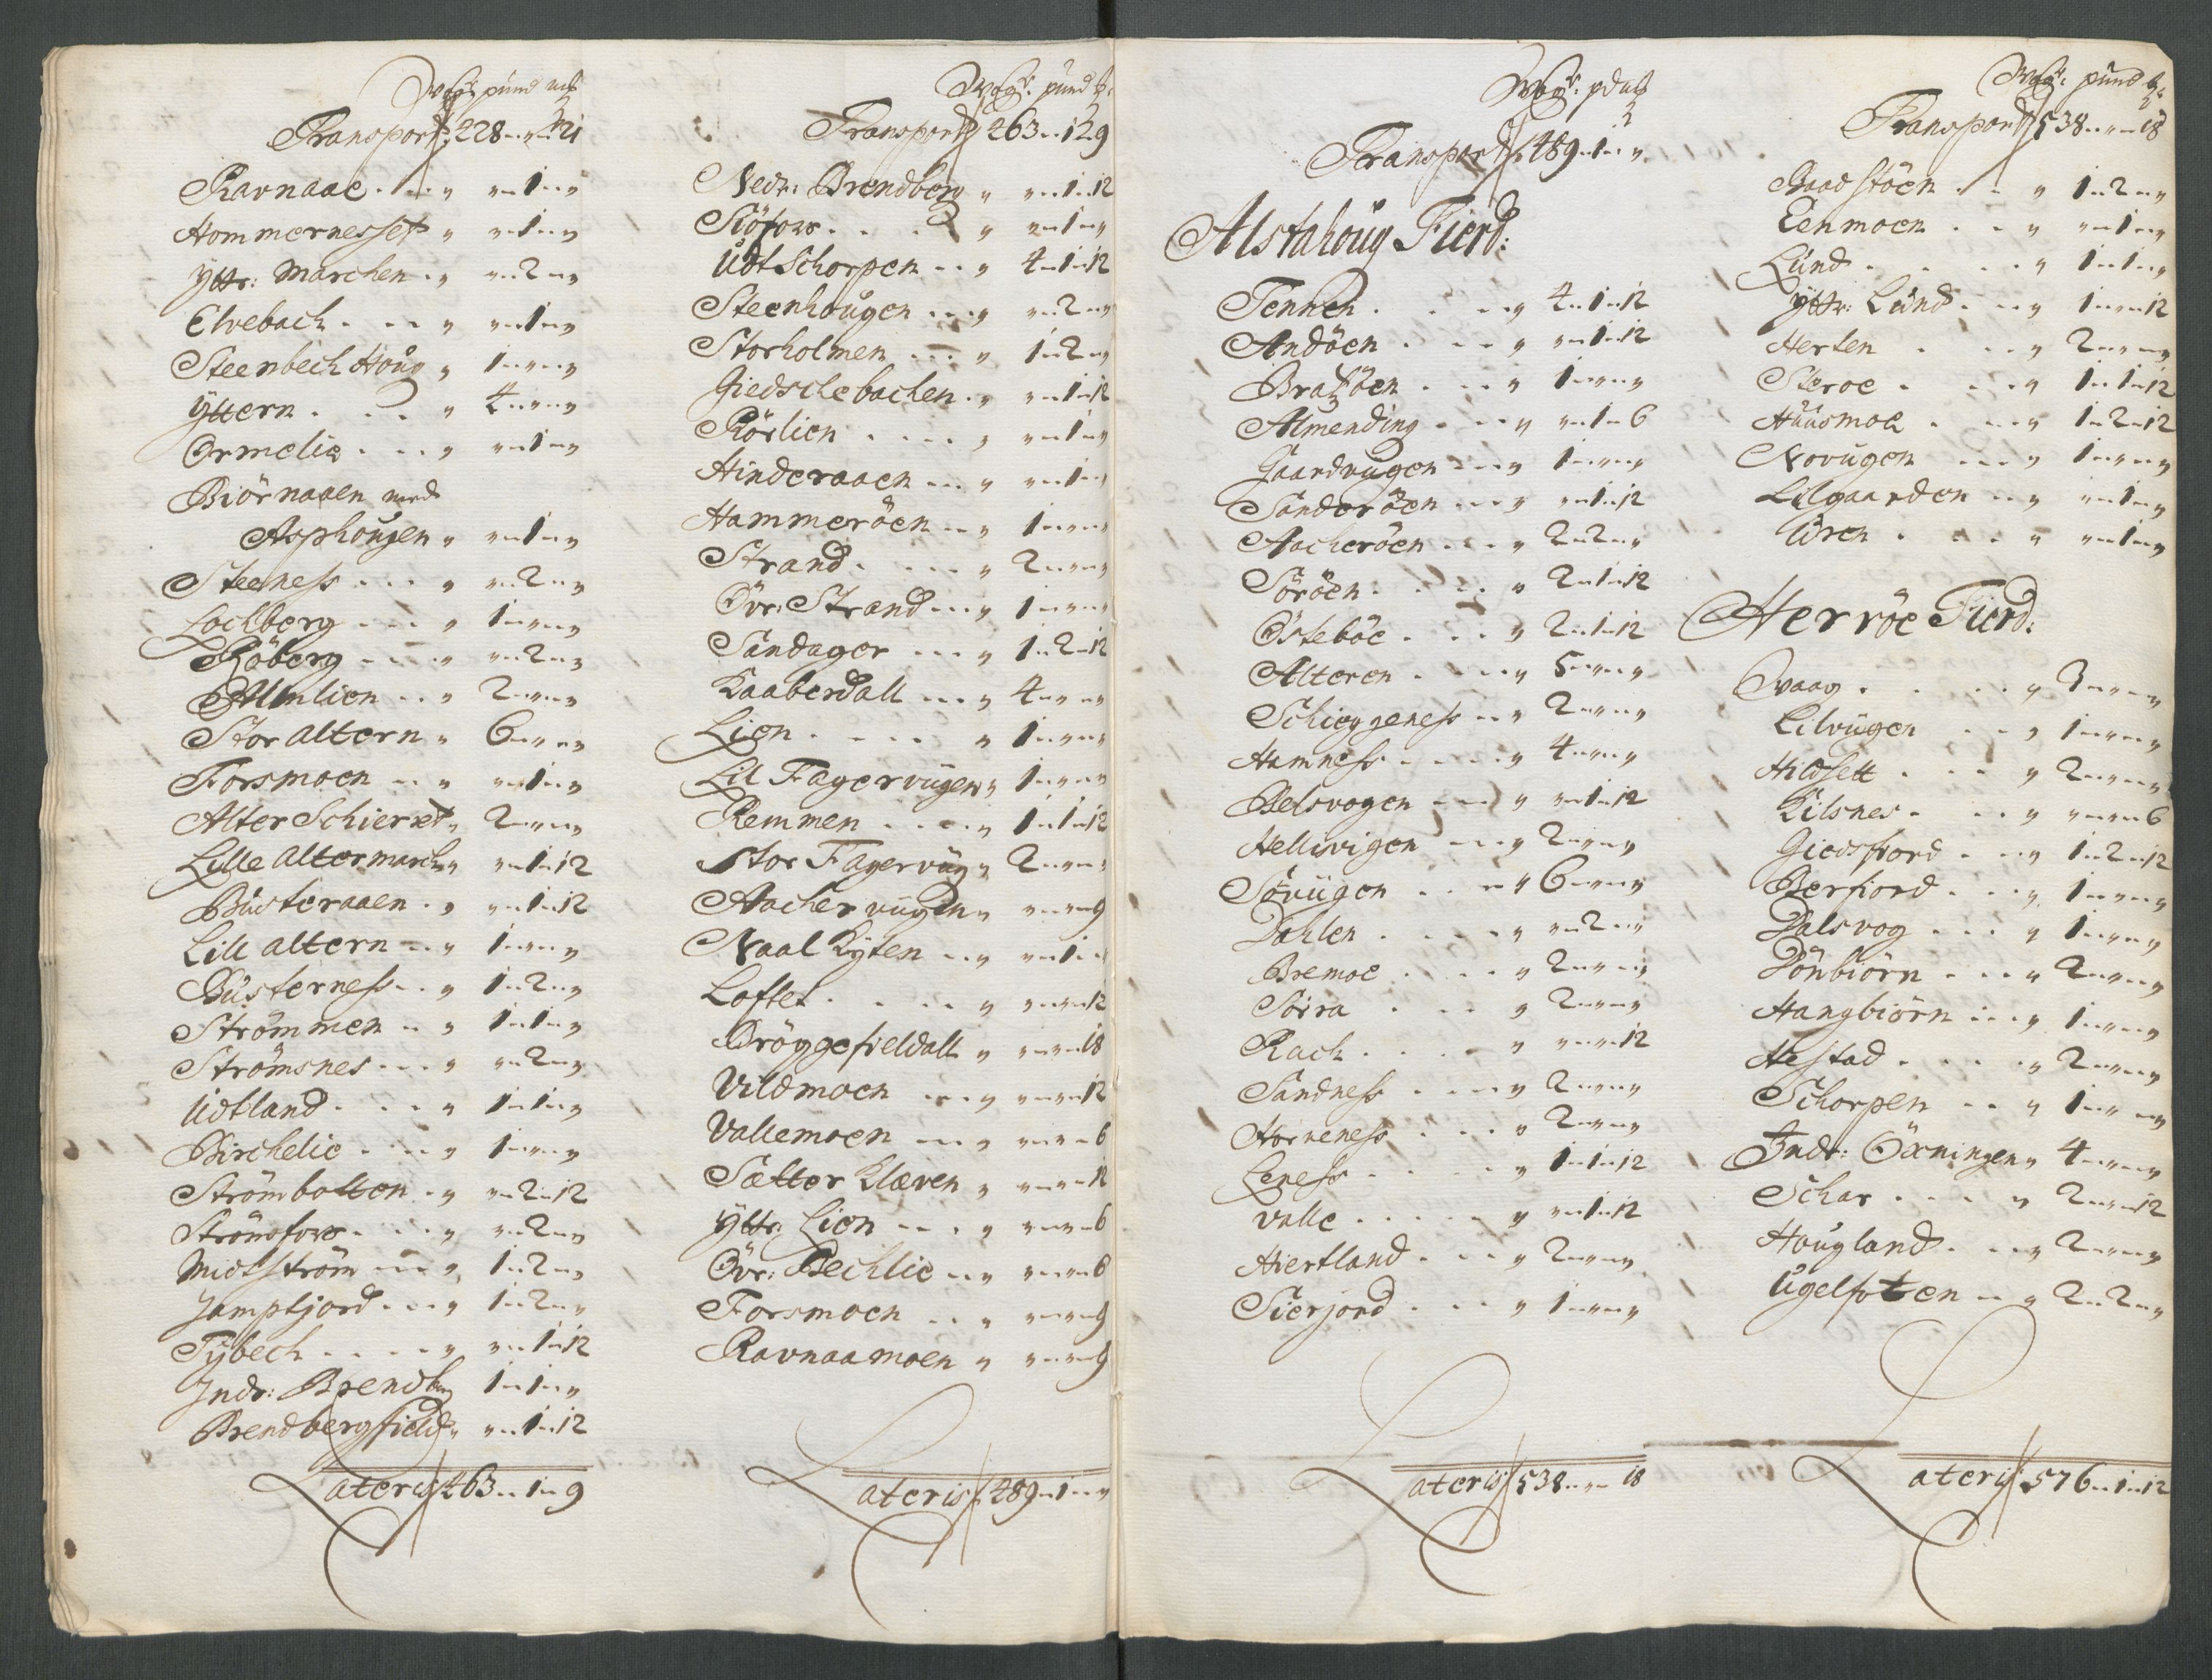 Wog: pund mk
Transport 428 „ „ 21
Ravnaae . . . „ „ 1 „
Hommernesset „ „ 1 „
Yttr: Marchen . „ „ 2 „
Elvebach . . . „ „ 1 „
Steenbech Houg „ 1 „ „
Yttern . . . „ 4 „ „
Ormelie . . . „ „ 1 „
Biörnaaen med
Asphougen „ „ 1 „
Steeness . . . „ „ 2 „
Lochberg . . . „ 1 „ „
Röberg . . . „ „ 2 „
Almlien . . „ 2 „ „
Stor altern „ 6 „ „
Forsmoen . . „ „ 1 „
Alter Schieret „ 2 „ „
Lille altermarch „ „ 1 12
Busteraaen . „ „ 1 12
Lill altern . . „ 1 „ „
Busterness . . „ 1 2 „
Strömmen . . „ 1 1 „
Strömsnes . . . „ „ 2 „
Udtland . . . „ 1 1 „
Birchelie . . . „ 1 „ „
Strömbotten . „ „ 2 12
Strömsfors . . . „ „ 2 „
Midtström . . . „ 1 2 „
Jamptjord . . . „ 1 2 „
Tÿbech . . . . „ „ 1 12
Indr: Brendberg 1 1 „
Brendbergfield „ „ 1 12
Lateris 463 „ 1 „ 9
Wog: pund
Transport 463 „ 1 „ 9
Nedr: Brendberg „ „ 1 12
Siöfors . . . „ „ 1 „
Udt Schorpen . . „ 4 1 12
Steenhougen . . . „ „ 2 „
Storholmen . . . „ 1 2 „
Giedschebachen . „ „ 1 12
Rörlien . . . . „ „ 1 „
Hinderaaen . . . „ „ 1 „
Hammeröen . . „ 1 „ „
Strand . . . . „ 2 „ „
Övr: Strand . . . „ 1 „ „
Sandager . . . „ 1 2 12
Kaaberdall . . . „ 4 „ „
Lien . . . . „ 1 „ „
Lil Fagervugen „ 1 „ „
Remmen . . . . „ 1 1 12
Stor Fagervug „ 2 „ „
Aachervugen „ „ „ 9
Naal Kyten . . „ „ 1 „
Loftet . . . . „ „ „ 12
Dröggefieldall „ „ „ 18
Vildmoen . . . „ „ „ 12
Vallemoen . . . „ „ „ 6
Sætter Klæven „ „ „ 12
Yttr: Lien . . . „ „ „ 6
Övr: Bechlie . . „ „ „ 6
Forsmoen . . „ „ „ 9
Ravnaamoen „ „ „ 9
Lateris 489 „ 1 „ „
Wog: pd mk
Transport 489 „ 1 „ „
Alstahoug Fierd:
Tennen . . . . „ 4 1 12
Andöen . . . „ „ 1 12
Bratöen . . . „ 1 „ „
Almending . . . „ „ 1 6
Gaardvugen . . . „ 1 „ „
Sanderöen . . . „ „ 1 12
Aacheröen . . . „ 2 2 „
Söröen . . . . „ 2 1 12
Östeböe . . . „ 2 1 12
Alteren . . . . „ 5 „ „
Schieggeness . . „ 2 „ „
Hamness . . . . „ 4 „ „
Belsvogen . . . „ „ 1 12
Hellesvigen . . . „ 2 „ „
Sövugen . . . „ 6 „ „
Dahlen . . . . „ „ 2 „
Bremoe . . . . „ 2 „ „
Sövra . . . „ 2 „ „
Rach . . . . „ „ „ 12
Sandness . . . . „ 2 „ „
Horveness . . . „ 2 „ „
Leness . . . . „ 1 1 12
Valle . . . . . „ „ 1 12
Hiertland . . . „ 2 „ „
Sierjord . . . „ 1 „ „
Lateris 538 „ „ 18
Wog: pund
Transport 538 „ „ 18
Baadstöen . . „ 1 2 „
Eenmoen . . „ „ 1 „
Lund . . . . . „ 1 1 „
Yttr: Lund . . . „ 1 „ 12
Herten . . . „ 2 „ „
Steroe . . . „ 1 1 12
Huusmoe . . . . „ 1 2 12
Novugen . . . „ 1 „ „
Lilgaarden . . „ „ 1 „
Uren . . . . „ „ 1 „
Herröe Fierd:
Vaag . . . . . „ 3 „ „
Lilvugen . . . „ 1 „ „
Hildsett . . . „ 2 „ „
Kilsnes . . . „ „ „ 6
Giedsfiord . . . „ 1 2 12
Berfiord . . . „ 1 „ „
Dalsvog . . . „ 1 „ „
Dönbiörn . . . „ 2 „ „
Hangbiörn . . . „ 1 „ „
Hestad . . . . . „ 2 „ „
Schorpen . . „ 1 „ „
Indr: Öxningen „ 4 „ „
Schar . . . . „ 2 „ 12
Hougland . . . „ 2 „ „
Ugelfoten . . „ 2 2 „
Lateris 576 „ 1 „ 12